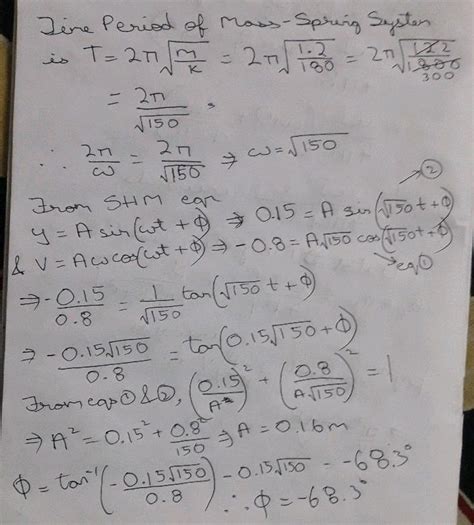 Time Period of Mass-Spring System
is T = 2π√(m/k) = 2π√(1.2/180) = 2π√(1.2/1800 300)
= 2π/√150 .
∴ 2π/ω = 2π/√150 ⇒ ω = √150
From SHM eqn ②
y = A sin(ωt + ϕ) ⇒ 0.15 = A sin(√150t + ϕ)
& V = Aω cos(ωt + ϕ) ⇒ -0.8 = A√150 cos(√150t + ϕ)
→ eq ①
⇒ -0.15/0.8 = 1/√150 tan(√150t + ϕ)
⇒ -0.15√150/0.8 = tan(0.15√150 + ϕ)
From eqs ① & ②, (0.15/A)² + (0.8/A√150)² = 1
⇒ A² = 0.15² + 0.8²/150 ⇒ A = 0.16m
ϕ = tan⁻¹(-0.15√150/0.8) - 0.15√150 = -68.3°
∴ ϕ = -68.3°